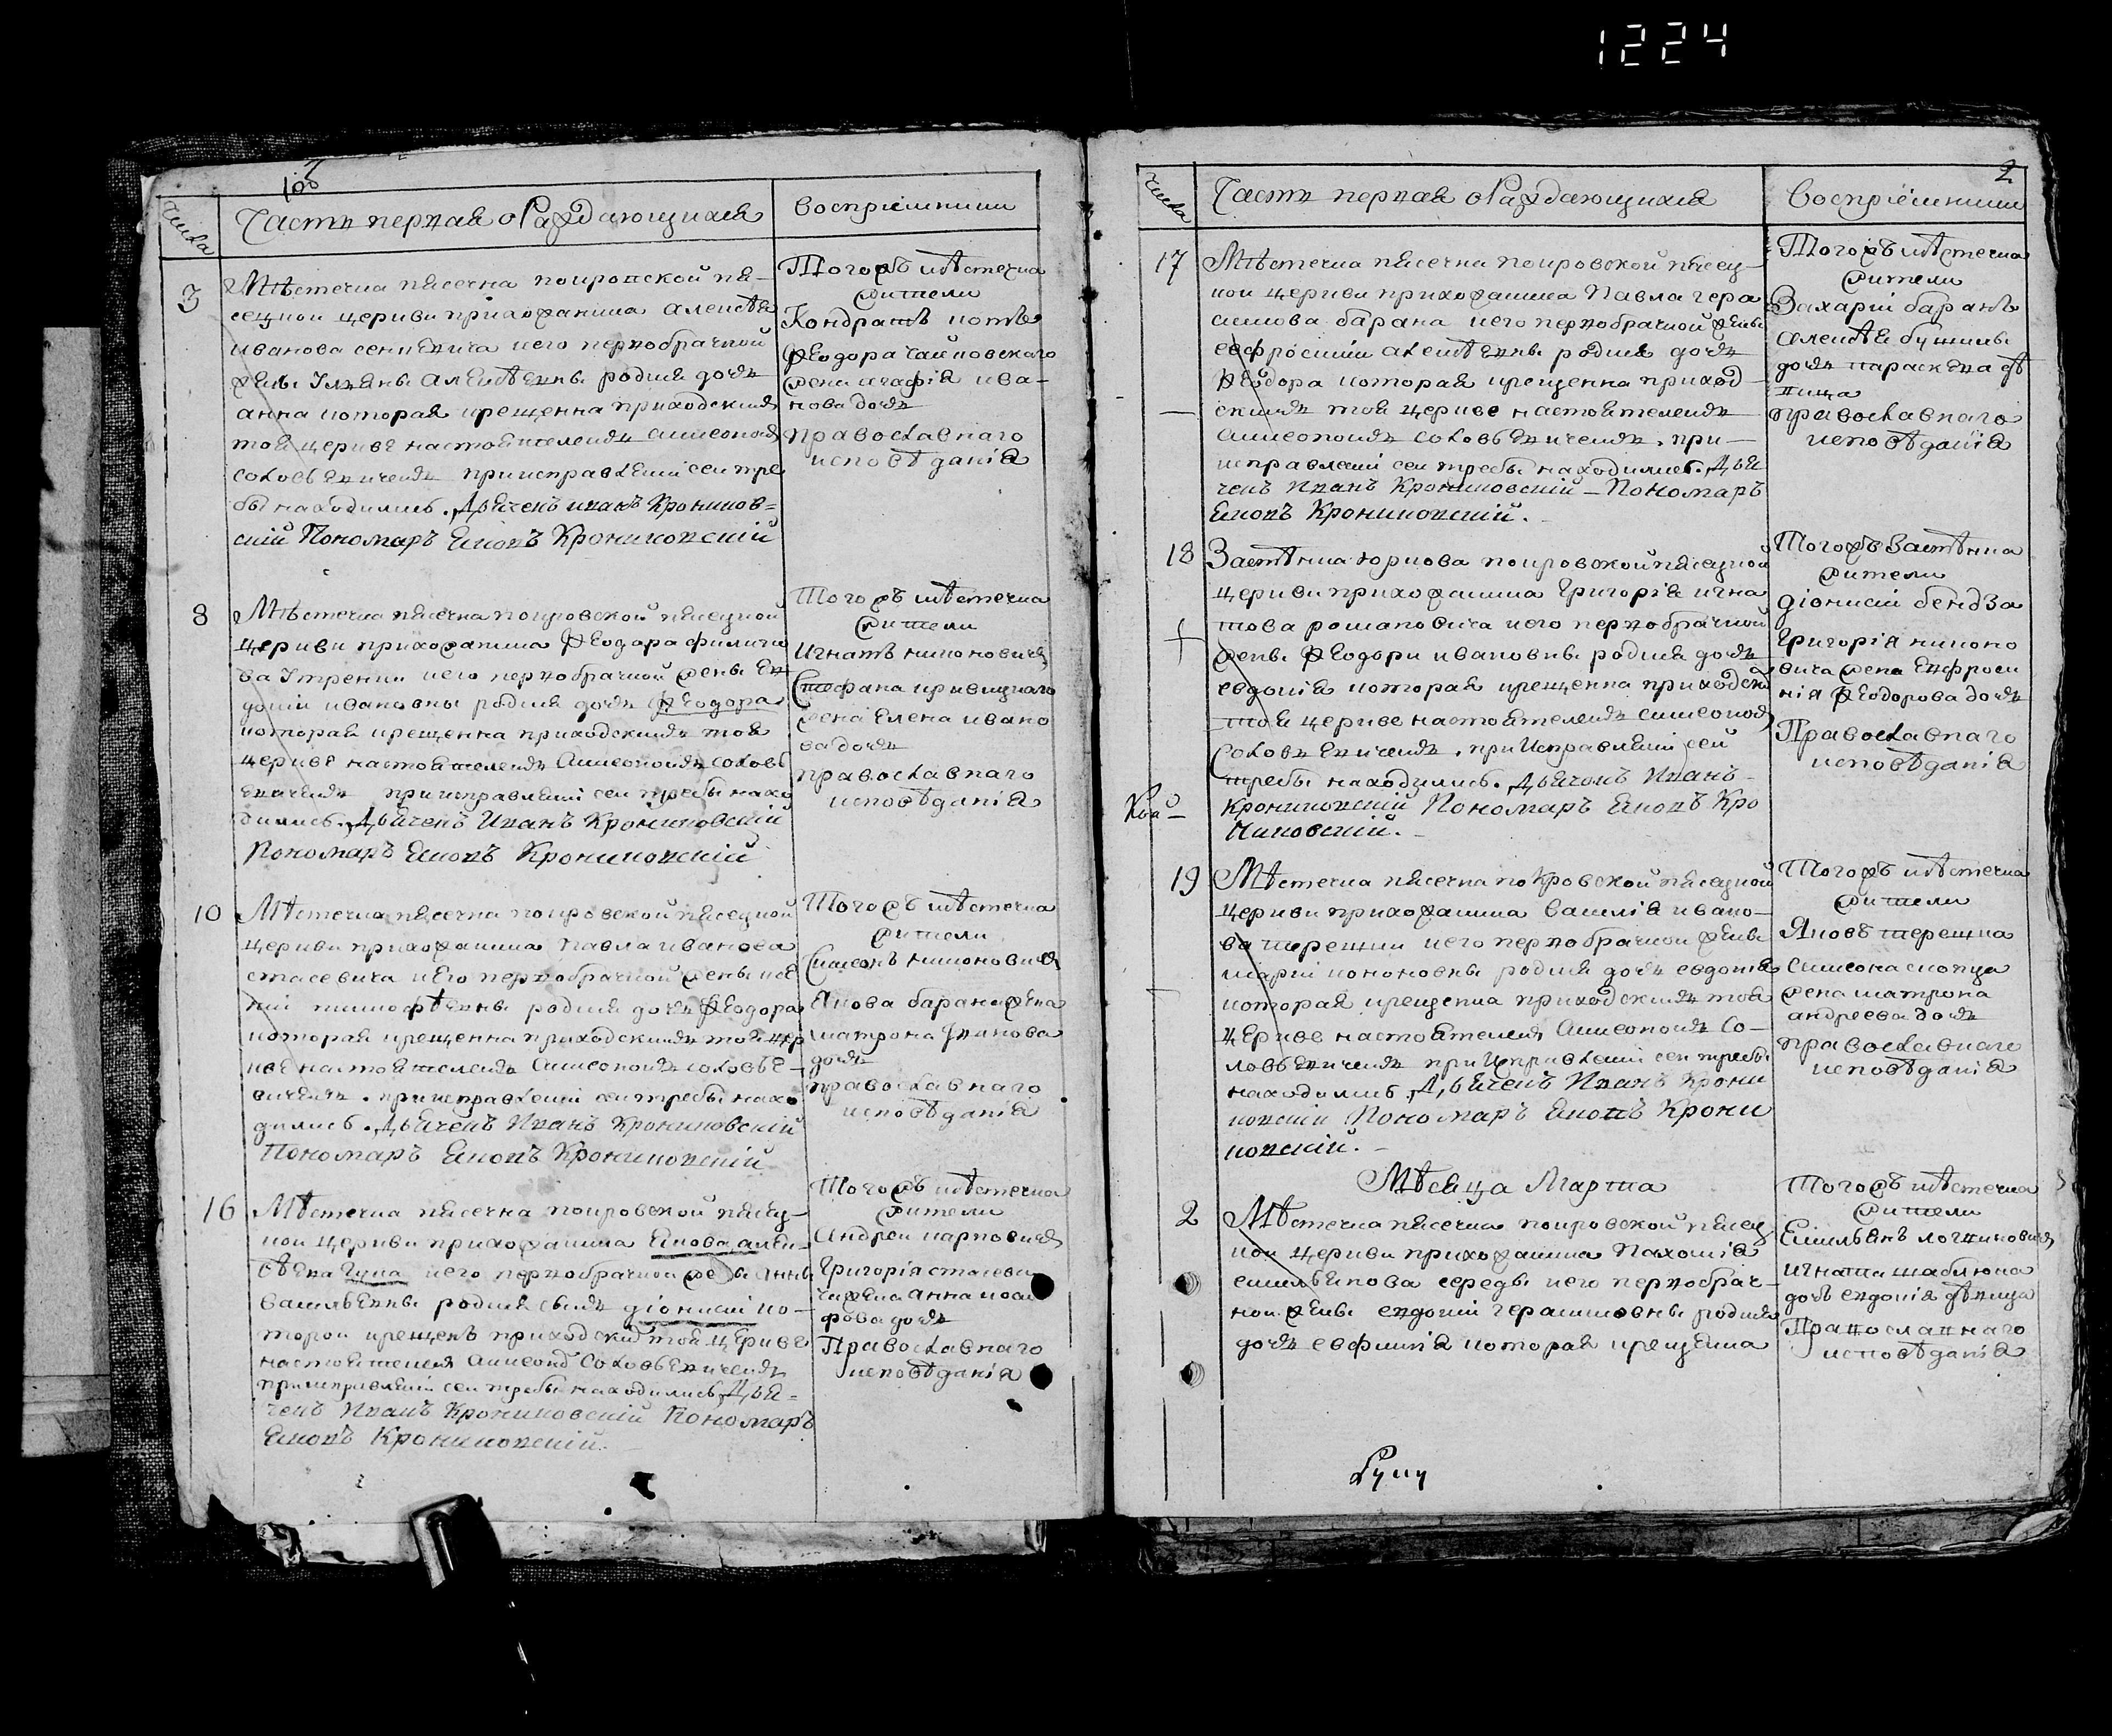 1224
Числа
Часть первая о Раждающихся
Воспріемники
3
Мѣстечка пясечна покровской пя-
сецкой церкви прихожанина алексѣя
иванова сенкевича и его первобрачной
жены Ульяны алексѣевны родися дочь
анна которая крещенна приходскимъ
той церкве настоятелемъ симеономъ
соловьевичемъ при исправленіи сей тре
бы находились. Дьячекъ иванъ Кроников=
скій Пономарь Яковъ Крониковскій
Тогожъ мѣстечка
жители
Кондратъ котъ
Ѳеодора
жена агафія ива-
нова дочь
православнаго
исповѣданія
8
Мѣстечка пясечна покровской пясецкой
церкви прихожанина Ѳеодора филипо
ва и его первобрачной жены Ев
докіи ивановны родися дочь Ѳеодора
которая крещенна приходскимъ той
церкве настоятелемъ Симеономъ соловь
евичемъ при исправленіи сей требы нахо
дились. Дьячекъ Иванъ Крониковскій
Пономарь Яковъ Крониковскій
Тогожъ мѣстечка
жители
Игнатъ никоновичъ
Стефана
жена Елена ивано
ва дочь
православнаго
исповѣданія
10
Мѣстечка пясечна покровской пясецкой
церкви прихожанина Павла иванова
стасевича и Его первобрачной жены
тимофѣевны родися дочь Ѳеодора
которая крещенна приходскимъ той цер
кве настоятелемъ Симеономъ соловье-
вичемъ. при исправленіи сей требы нахо
дились. Дьячекъ Иванъ Крониковскій
Пономарь Яковъ Крониковскій
Тогожъ мѣстечка
жители
Симеонъ никоновичъ
Якова барана жена
матрона иванова
дочь
православнаго
исповѣданія
16
Мѣстечка пясечна покровской пясец-
кой церкви прихожанина Якова алек-
сѣева и его первобрачной жены Анны
васильевны родися сынъ діонисій ко-
торой крещенъ приходскимъ той церкве
настоятелемъ Симеономъ Соловьевичемъ
при исправленіи сей требы находились Дья-
чекъ Иванъ Крониковскій Пономарь
Яковъ Крониковскій.
Тогожъ мѣстечка
жители
Андрей карповичъ
Григорія стасеви
ча жена Анна
дочь
Православнаго
исповѣданія
2
Числа
Часть первая о Раждающихся
Воспріемники
17
Мѣстечка пясечна покровской пясец-
кой церкви прихожанина Павла гера
симова барана и его первобрачной жены
евфросиніи алексѣевны родися дочь
Ѳеодора которая крещенна приход-
скимъ той церкве настоятелемъ
Симеономъ соловьевичемъ. при-
исправленіи сей требы находились. Дья
чекъ Иванъ Крониковскій - Пономарь
Яковъ Крониковскій.
Тогожъ мѣстечка
жители
Захарій баранъ
алексѣя
дочь параскева дѣ
вица
православнаго
исповѣданія
18
Застѣнка юркова покровской пясецкой
церкви прихожанина Григорія игна
това романовича и его первобрачной
жены Ѳеодоры ивановны родися дочь
евдокія которая крещенна приходски
той церкве настоятелемъ симеономъ
Соловьевичемъ. при Исправленіи сей
требы находились. Дьячокъ Иванъ
Крониковскій Пономарь Яковъ Кро
никовскій.
Тогожъ Застѣнка
жители
Діонисій бендза
Григорія никоно
вича жена Евфроси
нія Ѳеодорова дочь
Православнаго
исповѣданія
19
Мѣстечка пясечна покровской пясецкой
церкви прихожанина василія ивано-
ва терещки и его первобрачной жены
маріи кононовны родися дочь евдокія
которая крещенна приходскимъ той
церкве настоятелемъ Симеономъ Со-
ловьевичемъ при Исправленіи сей требы
находились Дьячекъ Иванъ Крони
ковскій Пономарь Яковъ Крони
ковскій.
Тогожъ мѣстечка
жители
Яковъ терещка
симеона
жена матрона
андреева дочь
православнаго
исповѣданія
Мѣсяца Марта
2
Мѣстечка пясечна покровской пясец
кой церкви прихожанина Пахомія
емельянова середы и его первобрач-
ной жены евдокіи герасимовны родися
дочь евфимія которая крещенна
Тогожъ мѣстечка
жители
Емельянъ логвиновичъ
игната
дочь евдокія дѣвица
Православнаго
исповѣданія